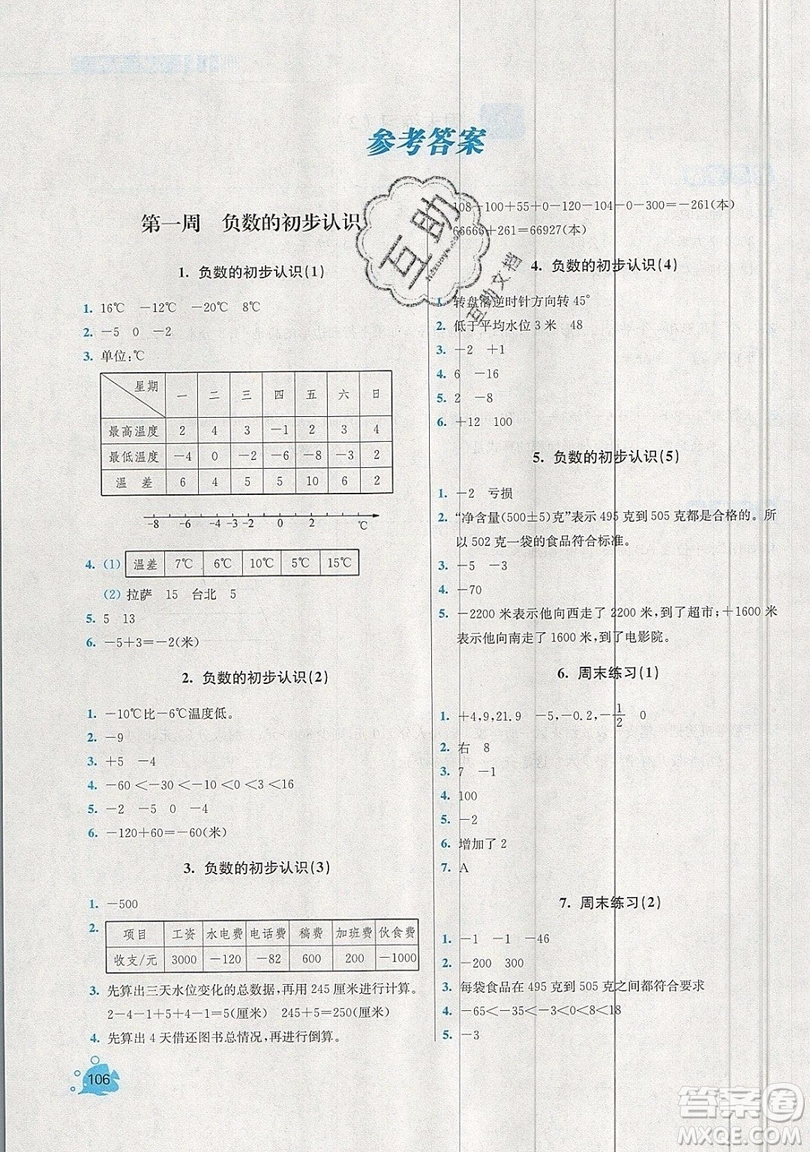 参考答案
第一周 负数的初步认识
1. 负数的初步认识(1)
1. 16℃ －12℃ －20℃ 8℃
2. －5 0 －2
3. 单位:℃
星期 一 二 三 四 五 六 日
最高温度 2 4 3 －1 2 3 4
最低温度 －4 0 －2 －6 －4 －2 －4
温 差 6 4 5 5 6 5 8
－8 －6 －4 －3 －2 －1 0 2 4 ℃
4. (1) 温差 7℃ 6℃ 10℃ 5℃ 15℃
(2) 拉萨 15 台北 5
5. 5 13
6. －5+3=－2(米)
2. 负数的初步认识(2)
1. －10℃比－6℃温度低。
2. －9
3. +5 －4
4. －60<－30<－10<3<16
5. －2 －5 0 －4
6. －120+60=－60(米)
3. 负数的初步认识(3)
1. －500
2. 项目 工资 水电费 电话费 稿费 加班费 伙食费
收支/元 3000 －120 －82 600 200 －1000
3. 先算出三天水位变化的总数据,再用 245 厘米进行计算。
2－4－1+5+4－1=5(厘米) 245+5=250(厘米)
4. 先算出 4 天借还图书总情况,再进行倒算。
108－100+55+0－120－104－0－300=－261(本)
66666+261=66927(本)
4. 负数的初步认识(4)
1. 转盘沿逆时针方向转 45°
2. 低于平均水位 3 米 48
3. －2 +1
4. 6 －16
5. 2 －8
6. +12 100
5. 负数的初步认识(5)
1. －2 亏损
2. “净含量(500±5)克”表示 495 克到 505 克都是合格的。所
以 502 克一袋的食品符合标准。
3. －5 －3
4. －70
5. －2200 米表示他向西走了 2200 米,到了超市;+1600 米
表示他向南走了 1600 米,到了电影院。
6. 周末练习(1)
1. +4,9,21.9 －5,－0.2,－1/2 0
2. 右 8
3. 7 －1
4. 100
5. －2
6. 增加了 2
7. A
7. 周末练习(2)
1. －1 －1 －46
2. －200 300
3. 每袋食品在 495 克到 505 克之间都符合要求
4. －65<－35<－3<0<8
5. －3
106
互助
互助文档
答案圈
MXQE.COM